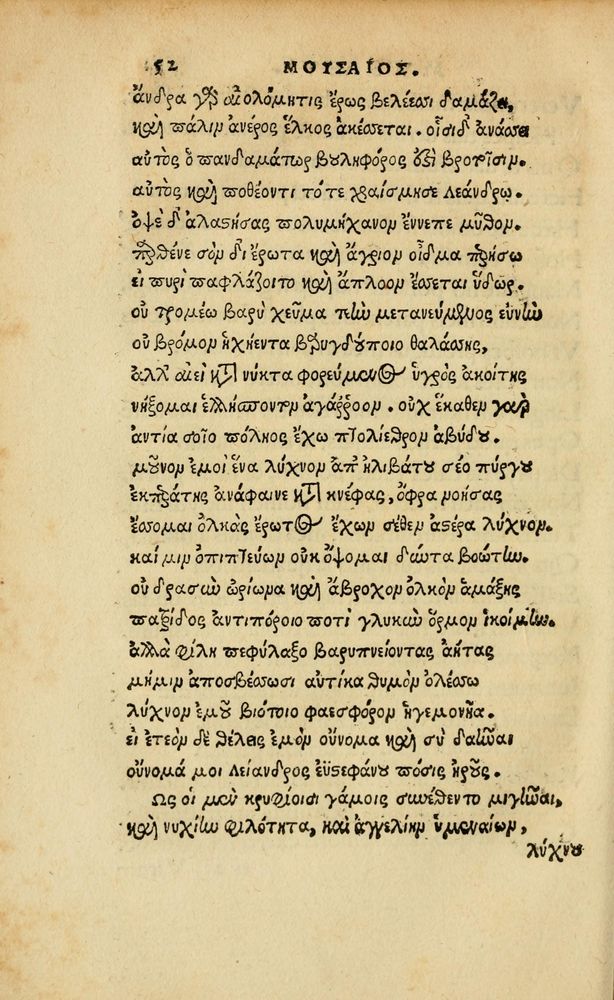 52 ΜΟΥΣΑΙΟΣ.
ἄνδρα γὰρ αἰολόμητις ἔρως βελέεσσι δαμάζει,
καὶ πάλιν ἀνέρος ἕλκος ἀκέσσεται. οἷσι δ' ἀνάσσει
αὐτὸς ὁ πανδαμάτωρ βουληφόρος ἐστὶ βροτοῖσιν.
αὐτὸς καὶ ποθέοντι τότε χραίσμησε Λεάνδρῳ.
ὀψὲ δ' ἀλαστήσας πολυμήχανον ἔννεπε μῦθον.
παρθένε σὸν δι' ἔρωτα καὶ ἄγριον οἶδμα περήσω
εἰ πυρὶ παφλάζοιτο καὶ ἄπλοον ἔσσεται ὕδωρ.
οὐ τρομέω βαρὺ χεῦμα τεὴν μετανεύμενος εὐνὴν
οὐ βρόμον ἠχήεντα βαρυγδούποιο θαλάσσης,
ἀλλ' αἰεὶ κατὰ νύκτα φορεύμενος ὑγρὸς ἀκοίτης
νήξομαι ἑλλήσποντον ἀγάρροον. οὐχ ἕκαθεν γὰρ
ἀντία σοῖο πόληος ἔχω πτολίεθρον ἀβύδου.
μοῦνον ἐμοὶ ἕνα λύχνον ἀπ' ἠλιβάτου σέο πύργου
ἐκ περάτης ἀνάφαινε κατὰ κνέφας, ὄφρα νοήσας
ἔσσομαι ὁλκὰς ἔρωτος ἔχων σέθεν ἀστέρα λύχνον.
καί μιν ὀπιπτεύων οὐκ ὄψομαι δῶντα βοώτην.
οὐ θρασὺν ὠρίωνα καὶ ἄβροχον ὁλκὸν ἁμάξης
πατρίδος ἀντιπόροιο ποτὶ γλυκὺν ὅρμον ἱκοίμην.
ἀλλὰ φίλη πεφύλαξο βαρυπνείοντας ἀήτας
μή μιν ἀποσβέσσωσι αὐτίκα θυμὸν ὀλέσσω
λύχνον ἐμοῦ βιότοιο φαεσφόρον ἡγεμονῆα.
εἰ ἐτεὸν δὲ θέλεις ἐμὸν οὔνομα καὶ σὺ δαῆναι
οὔνομά μοι Λείανδρος ἐϋστεφάνου πόσις ἡροῦς.
Ως οἱ μὲν κρυφίοισι γάμοις συνέθεντο μιγῆναι,
καὶ νυχίην φιλότητα, καὶ ἀγγελίην ὑμεναίων,
λύχνου